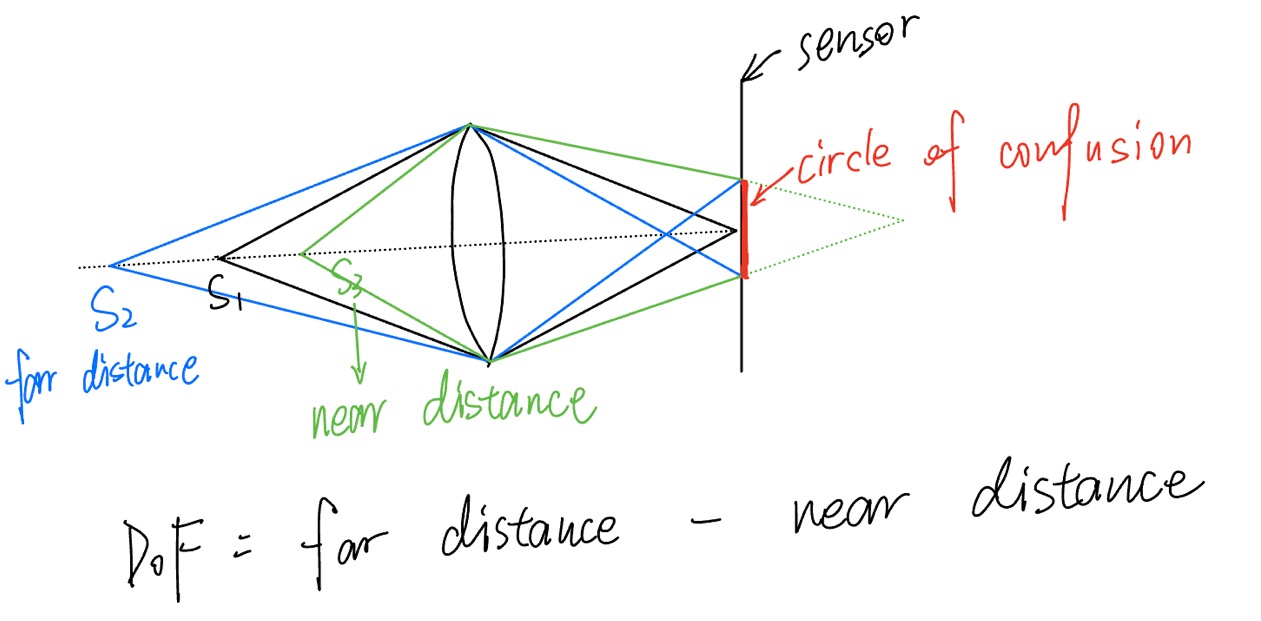 sensor
circle of confusion
S2
S1
S3
far distance
near distance
DoF = far distance - near distance